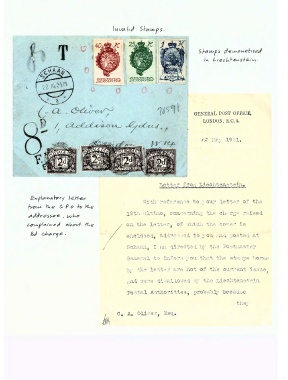 Invalid Stamps.
Stamps demonetized
in Liechtenstein.
T
SCHAAN
C. A. Oliver,
1, Addison Gdns,
Explanatory letter
from the G.P.O to the
addressee, who
complained about the
8d charge.
GENERAL POST OFFICE,
LONDON, E.C.1.
May 1921.
Letter from Liechtenstein.
With reference to your letter of the
19th ultimo, concerning the charge raised
on the letter, of which the cover is
enclosed, addressed to you and posted at
Schaan, I am directed by the Postmaster
General to inform you that the stamps borne
by the letter are not of the current issue,
and were disallowed by the Liechtenstein
Postal Authorities, probably because
they
C. A. Oliver, Esq.